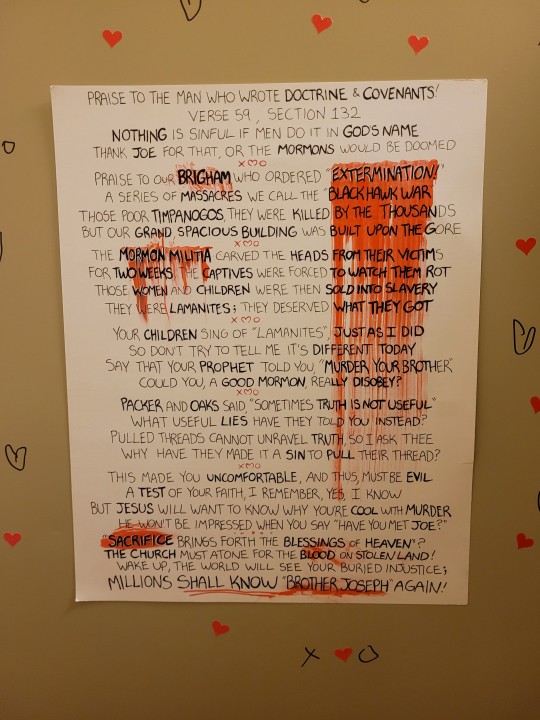 PRAISE TO THE MAN WHO WROTE DOCTRINE & COVENANTS!
VERSE 59, SECTION 132
NOTHING IS SINFUL IF MEN DO IT IN GOD'S NAME
THANK JOE FOR THAT, OR THE MORMONS WOULD BE DOOMED
X♡O
PRAISE TO OUR BRIGHAM WHO ORDERED "EXTERMINATION!"
A SERIES OF MASSACRES WE CALL THE "BLACK HAWK WAR"
THOSE POOR TIMPANOGOS, THEY WERE KILLED BY THE THOUSANDS
BUT OUR GRAND SPACIOUS BUILDING WAS BUILT UPON THE GORE
X♡O
THE MORMON MILITIA CARVED THE HEADS FROM THEIR VICTIMS
FOR TWO WEEKS, THE CAPTIVES WERE FORCED TO WATCH THEM ROT
THOSE WOMEN AND CHILDREN WERE THEN SOLD INTO SLAVERY
THEY WERE LAMANITES; THEY DESERVED WHAT THEY GOT
X♡O
YOUR CHILDREN SING OF "LAMANITES", JUST AS I DID
SO DON'T TRY TO TELL ME IT'S DIFFERENT TODAY
SAY THAT YOUR PROPHET TOLD YOU, "MURDER YOUR BROTHER"
COULD YOU, A GOOD MORMON, REALLY DISOBEY?
X♡O
PACKER AND OAKS SAID, "SOMETIMES TRUTH IS NOT USEFUL"
WHAT USEFUL LIES HAVE THEY TOLD YOU INSTEAD?
PULLED THREADS CANNOT UNRAVEL TRUTH, SO I ASK THEE
WHY HAVE THEY MADE IT A SIN TO PULL THEIR THREAD?
X♡O
THIS MADE YOU UNCOMFORTABLE, AND THUS, MUST BE EVIL
A TEST OF YOUR FAITH, I REMEMBER, YES, I KNOW
BUT JESUS WILL WANT TO KNOW WHY YOU'RE COOL WITH MURDER
HE WON'T BE IMPRESSED WHEN YOU SAY "HAVE YOU MET JOE?"
"SACRIFICE BRINGS FORTH THE BLESSINGS OF HEAVEN"?
THE CHURCH MUST ATONE FOR THE BLOOD ON STOLEN LAND!
WAKE UP, THE WORLD WILL SEE YOUR BURIED INJUSTICE;
MILLIONS SHALL KNOW "BROTHER JOSEPH" AGAIN!
X ♥ O